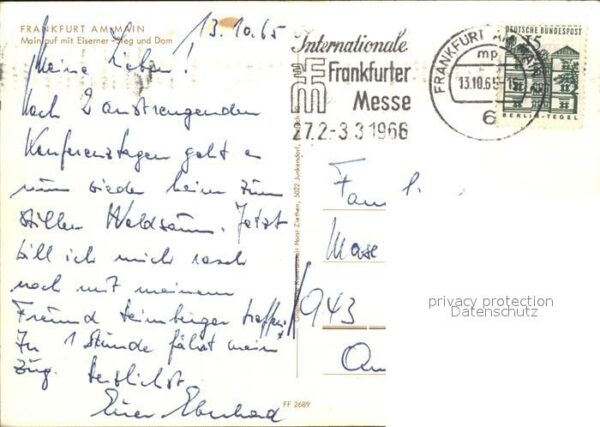 FRANKFURT AM MAIN
Mainlauf mit Eiserner Steg und Dom
13.10.65
Meine Lieben!
Nach 2 anstrengenden
Konferenztagen geht es
nun wieder heim zum
stillen Waldsaum. Jetzt
will ich mich rasch
noch mit meinem
Freund treffen.
In 1 Stunde fährt mein
Zug. Herzlichst
Euer Eberhard
Internationale
Frankfurter
Messe
27.2.-3.3.1966
FRANKFURT AM MAIN
mp
13.10.65
6
DEUTSCHE BUNDESPOST
15
BERLIN-TEGEL
Fam
943
FF 2689
privacy protection
Datenschutz